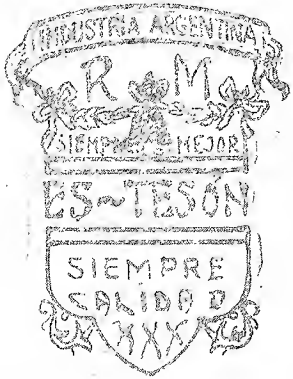 INDUSTRIA ARGENTINA
R M
SIEMPRE MEJOR
ES~TESÓN
SIEMPRE
CALIDAD
XXX